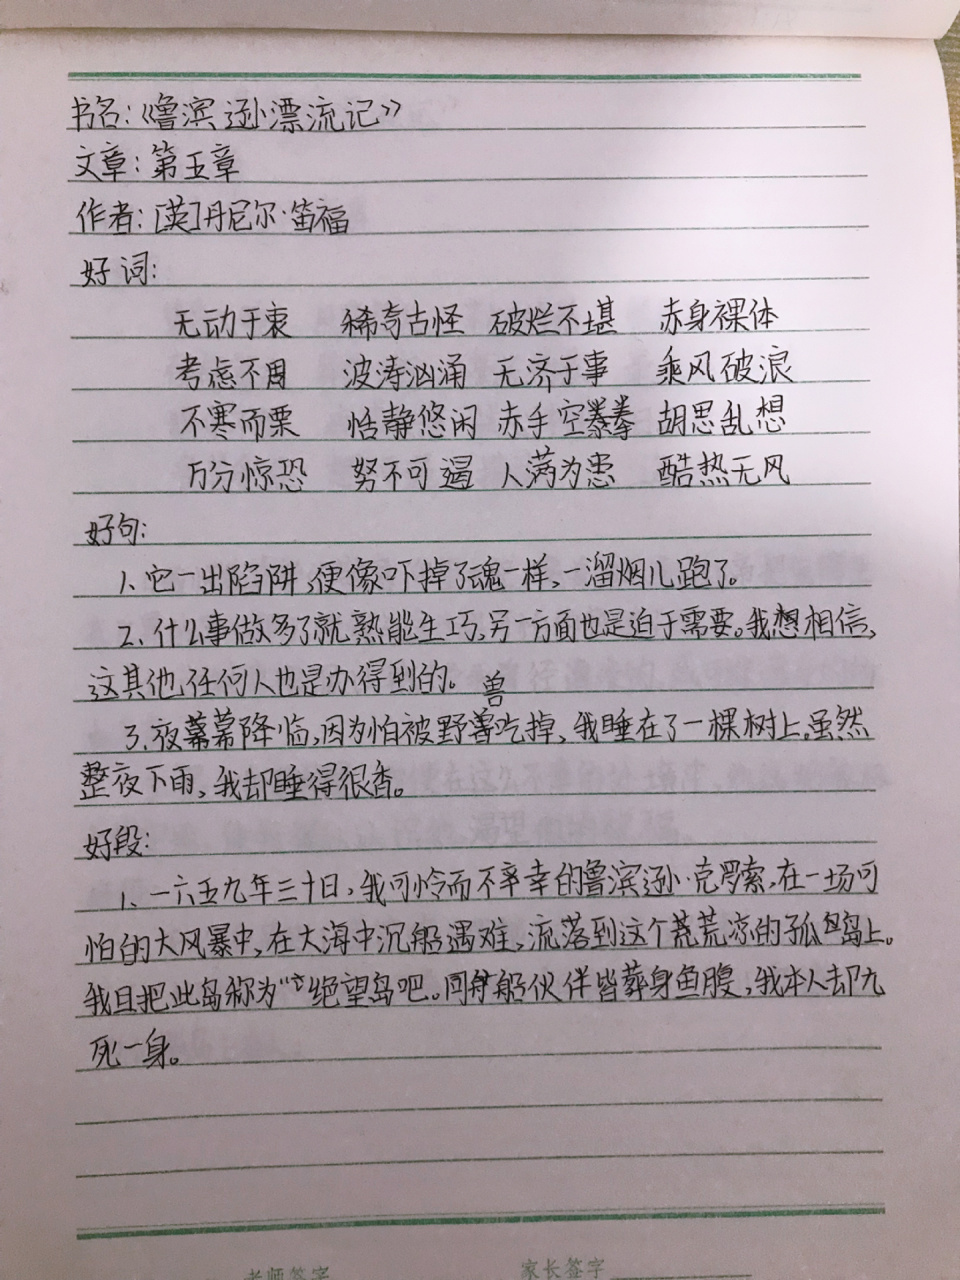 书名:《鲁滨逊漂流记》
文章:第五章
作者:[英]丹尼尔·笛福
好词:
无动于衷 稀奇古怪 破烂不堪 赤身裸体
考虑不周 波涛汹涌 无济于事 乘风破浪
不寒而栗 恬静悠闲 赤手空拳 胡思乱想
万分惊恐 努不可遏 人满为患 酷热无风
好句:
1、它一出陷阱,便像吓掉了魂一样,一溜烟儿跑了。
2、什么事做多了就熟能生巧,另一方面也是迫于需要。我想相信,
这其他任何人也是办得到的。
3、夜幕降临,因为怕被野兽吃掉,我睡在了一棵树上。虽然
整夜下雨,我却睡得很香。
好段:
1、一六五九年三十日,我可怜而不辛幸的鲁滨逊·克罗索,在一场可
怕的大风暴中,在大海中沉船遇难,流落到这个荒凉的孤岛上。
我且把此岛称为“绝望岛吧。同船伙伴皆葬身鱼腹,我本人却九
死一身。
老师签字
家长签字